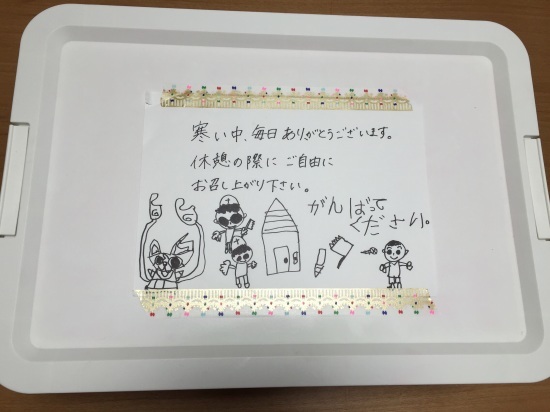 寒い中、毎日ありがとうございます。
休憩の際に ご自由に
お召し上がり下さい。
がんばって
ください。